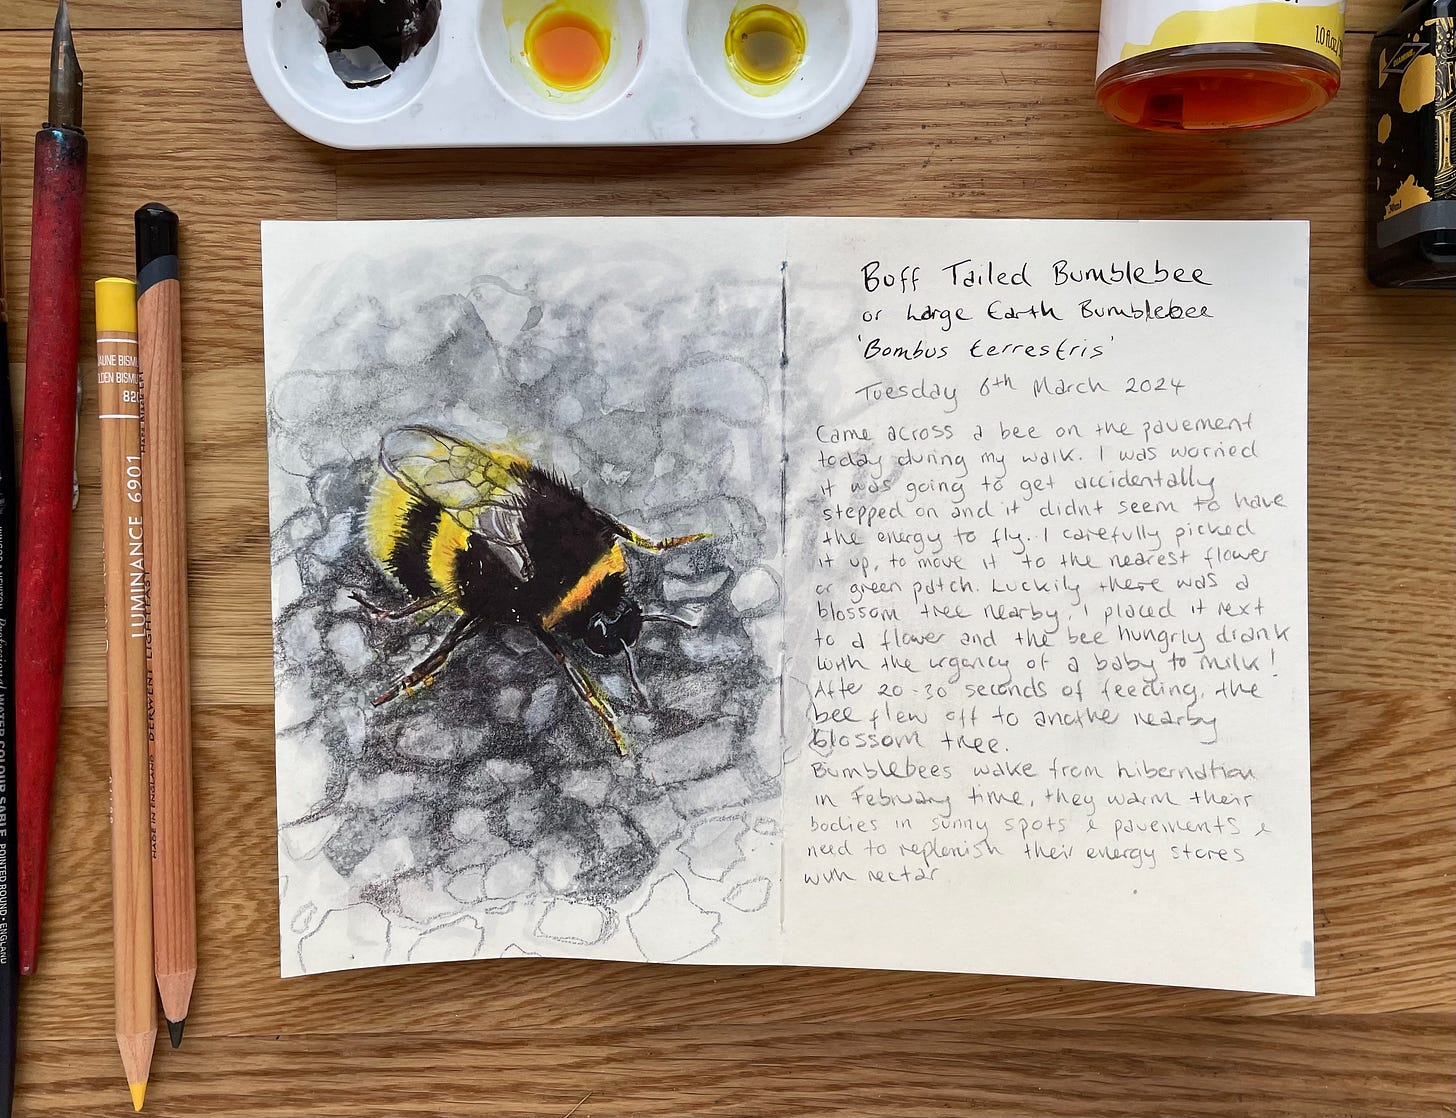 1.0 fl
30ml
Buff Tailed Bumblebee
or Large Earth Bumblebee
'Bombus terrestris'
Tuesday 6th March 2024
Came across a bee on the pavement
today during my walk. I was worried
it was going to get accidentally
stepped on and it didnt seem to have
the energy to fly. I carefully picked
it up, to move it to the nearest flower
or green patch. Luckily there was a
blossom tree nearby, I placed it next
to a flower and the bee hungrly drank
with the urgency of a baby to milk!
After 20-30 seconds of feeding, the
bee flew off to another nearby
blossom tree.
Bumblebees wake from hibernation
in February time, they warm their
bodies in sunny spots & pavements &
need to replenish their energy stores
with nectar
JAUNE BISMU
LDEN BISMU
820
LUMINANCE 6901
MADE IN ENGLAND DERWENT LIGHTFAST
WATER COLOUR SABLE POINTED ROUND • ENGLAND